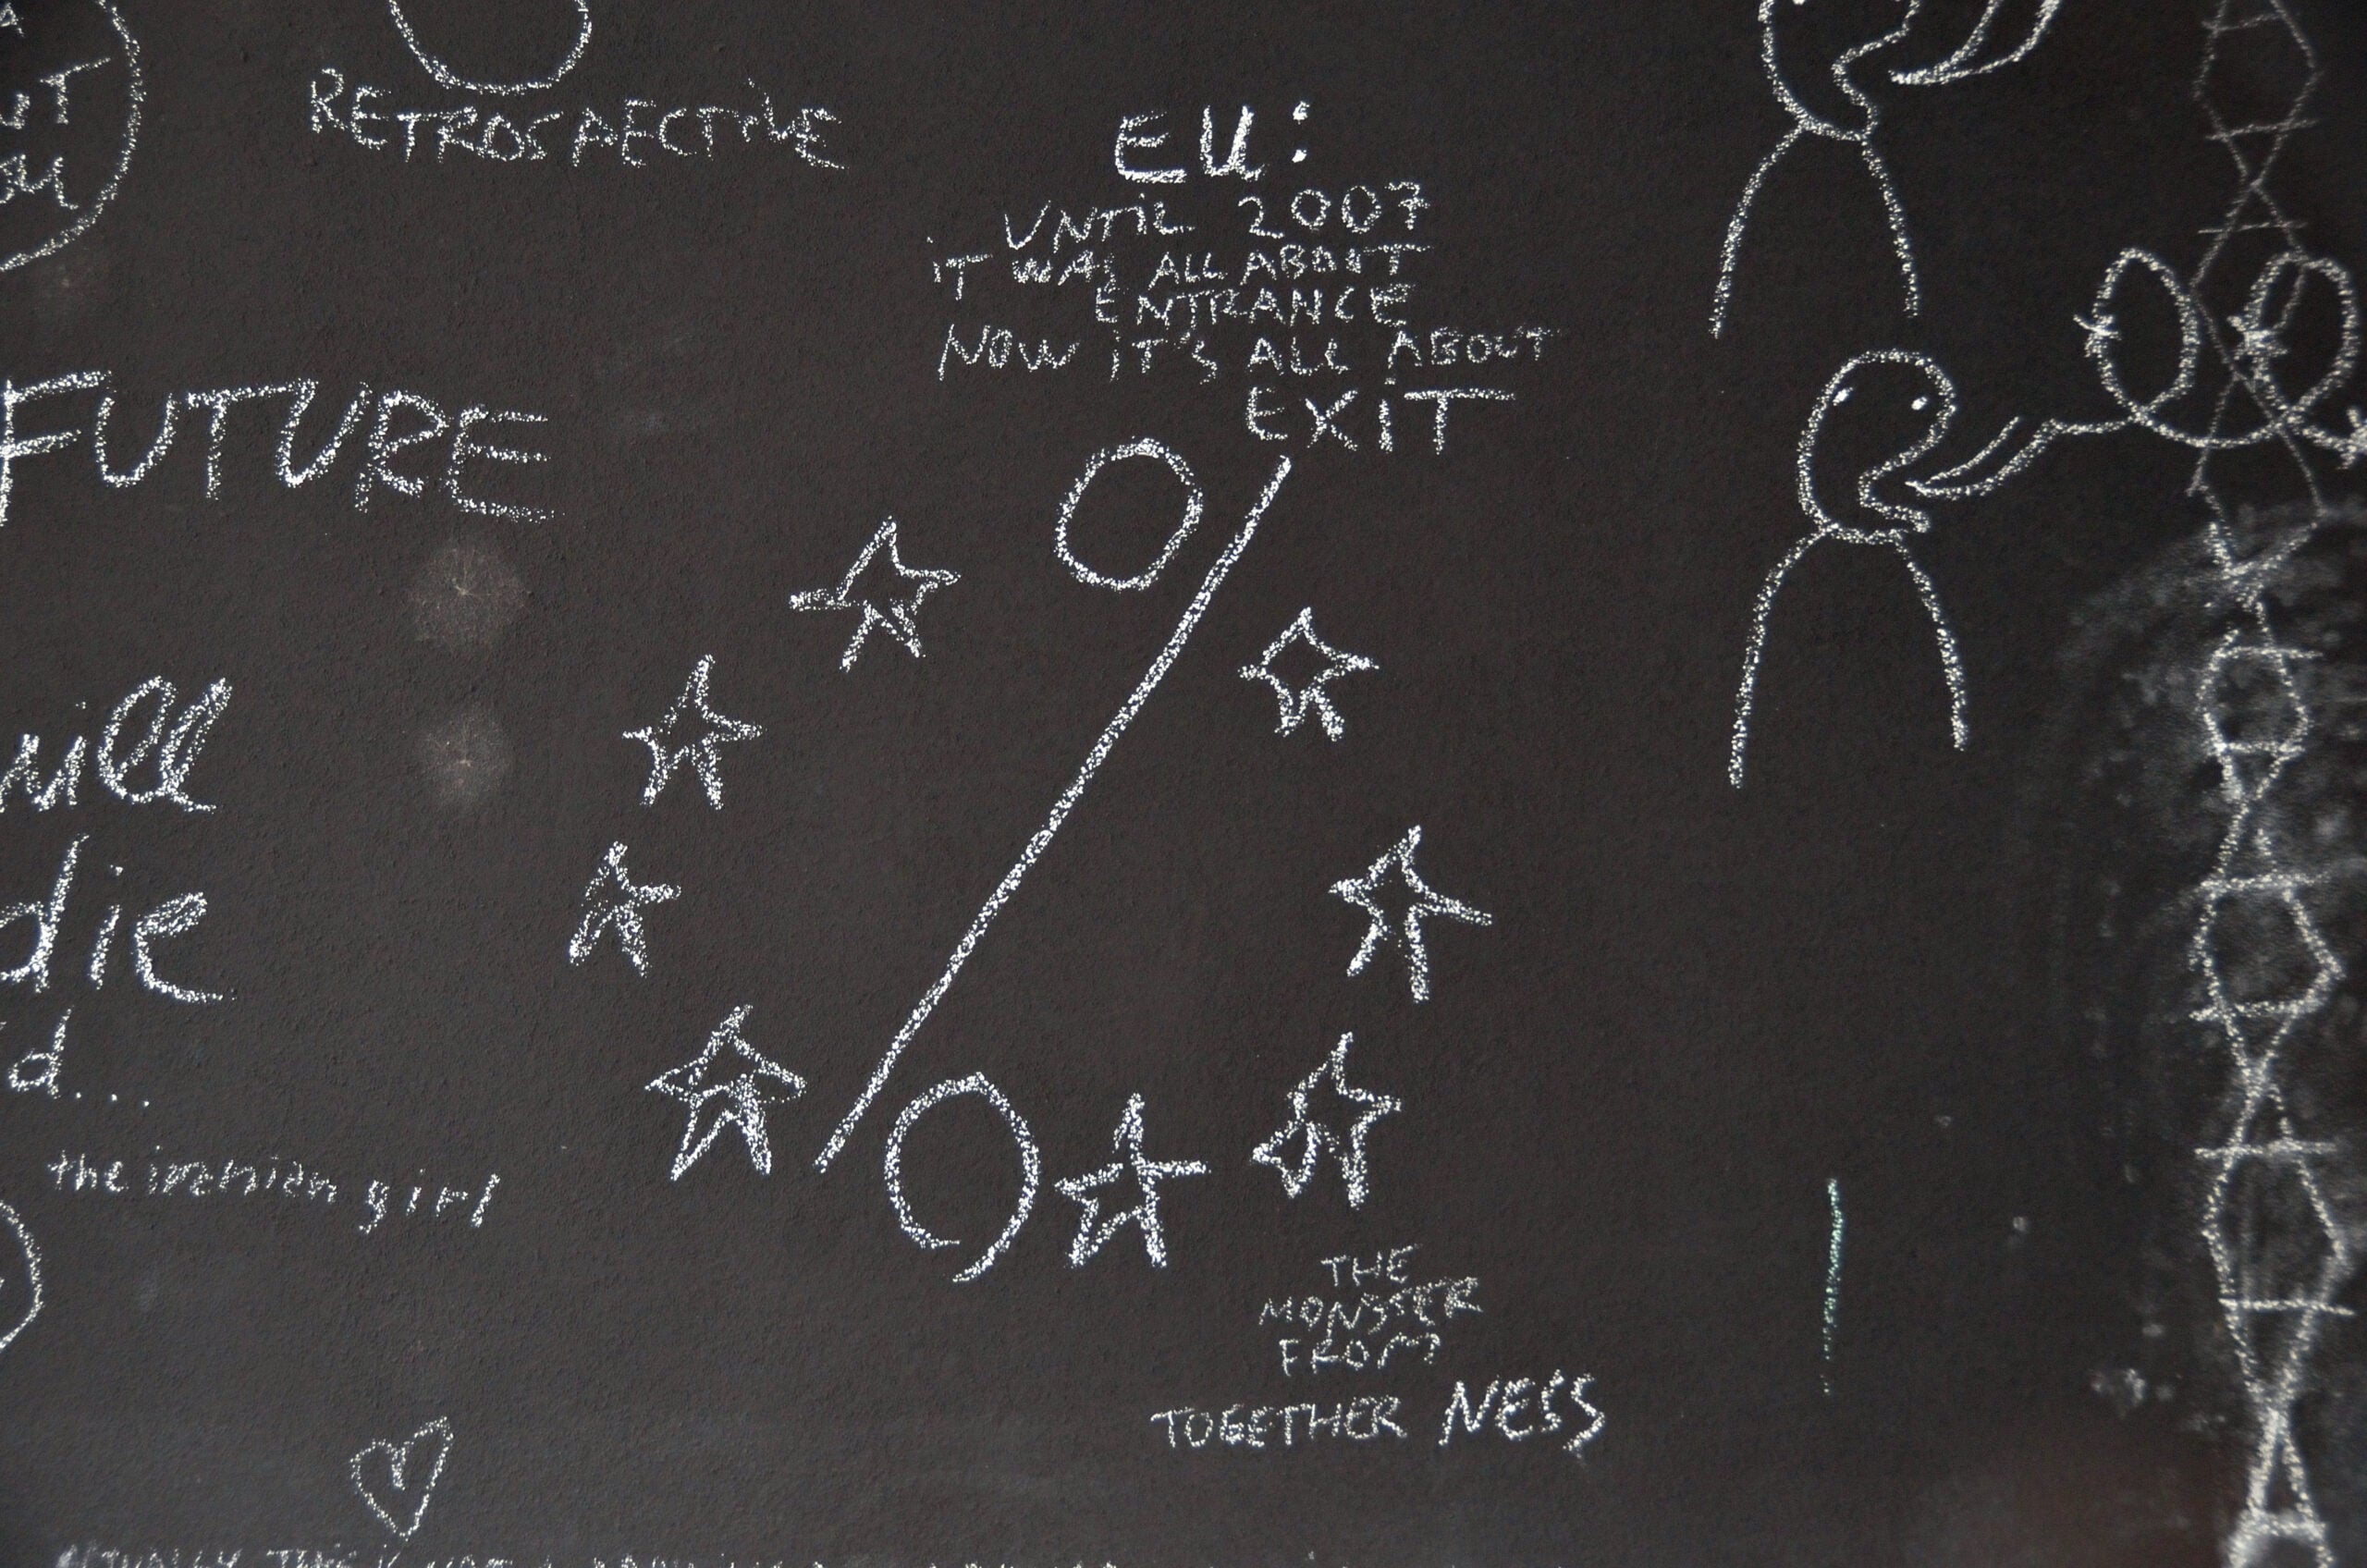 RETROSPECTIVE
EU:
UNTIL 2007
IT WAS ALL ABOUT
ENTRANCE
NOW IT'S ALL ABOUT
EXIT
FUTURE
will
die
d...
the iranian girl
%
THE
MONSTER
FROM
TOGETHER NESS